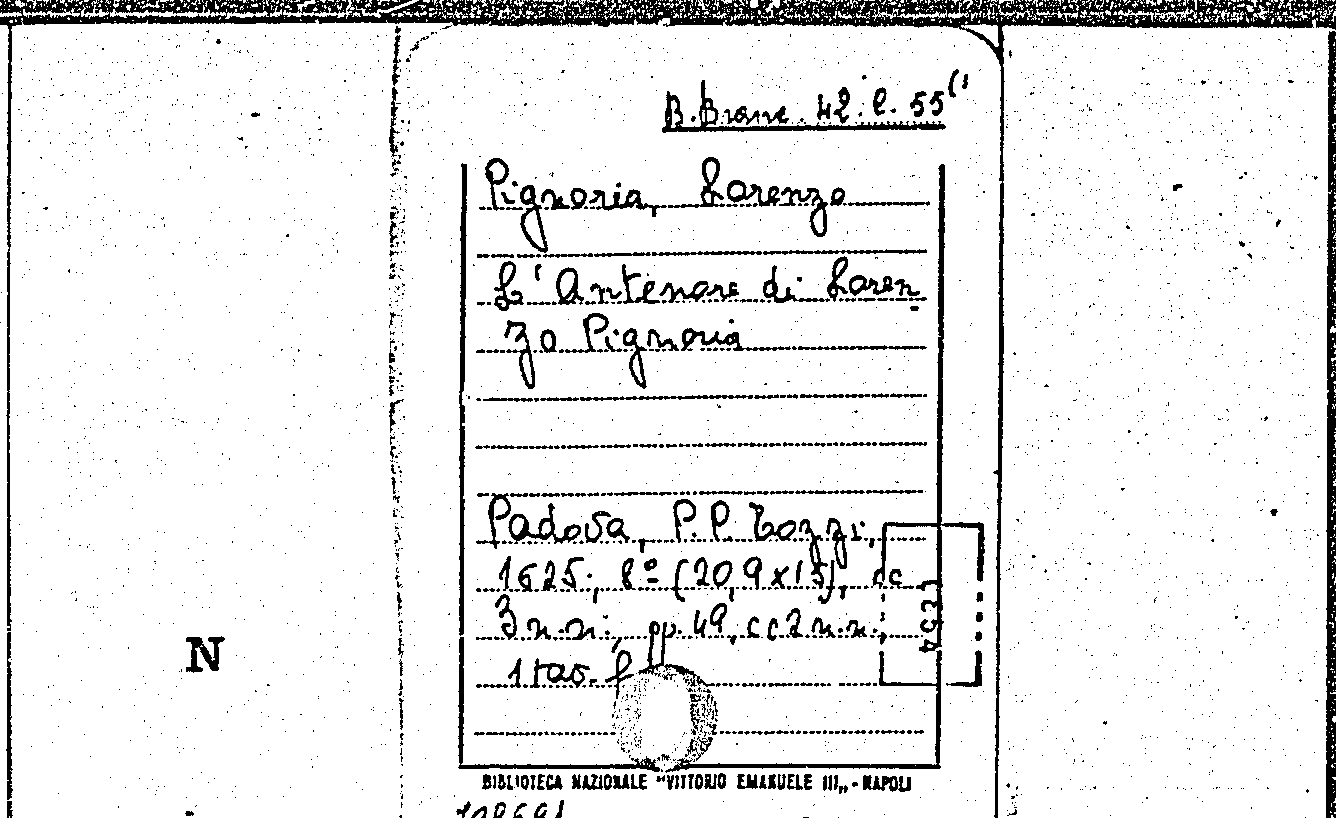 B. Branc. 42. C. 55(1
Pignoria, Lorenzo
L'Antenore di Loren
zo Pignoria
Padova, P. P. Tozzi,
1625; 8º (20,9x15), cc
3 n.n., pp. 49, cc 2 n.n.,
1 tav. f
N
BIBLIOTECA NAZIONALE "VITTORIO EMANUELE III„ - NAPOLI